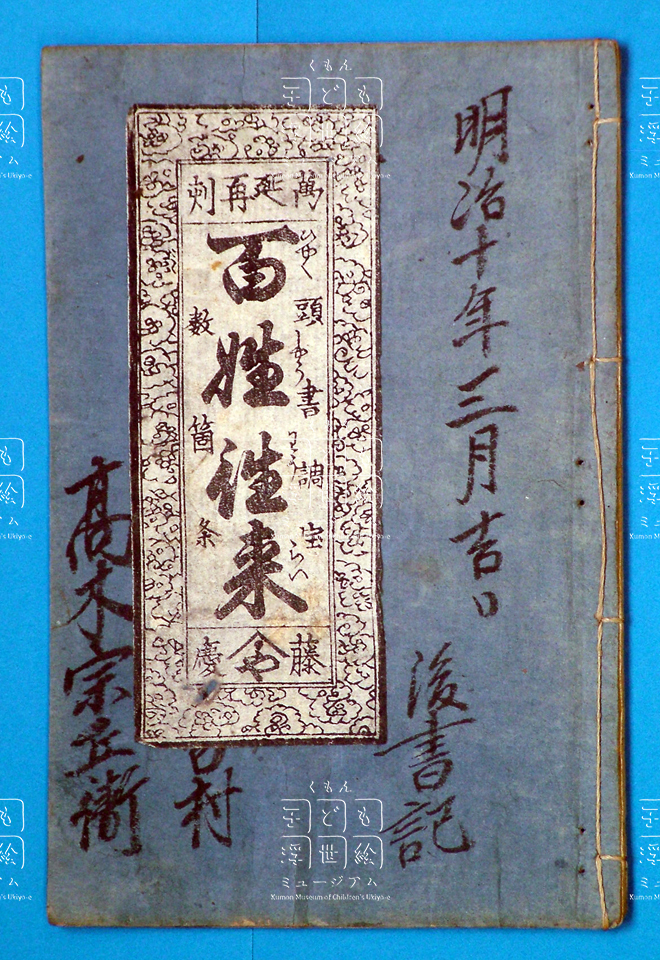 明治十年三月吉日
後書記
萬延再刻
頭書調宝
ひやくしやうわうらい
百姓往来
数箇条
藤や慶
村
高木宗兵衛
くもん
子ども
浮世絵
ミュージアム
Kumon Museum of Children's Ukiyo-e